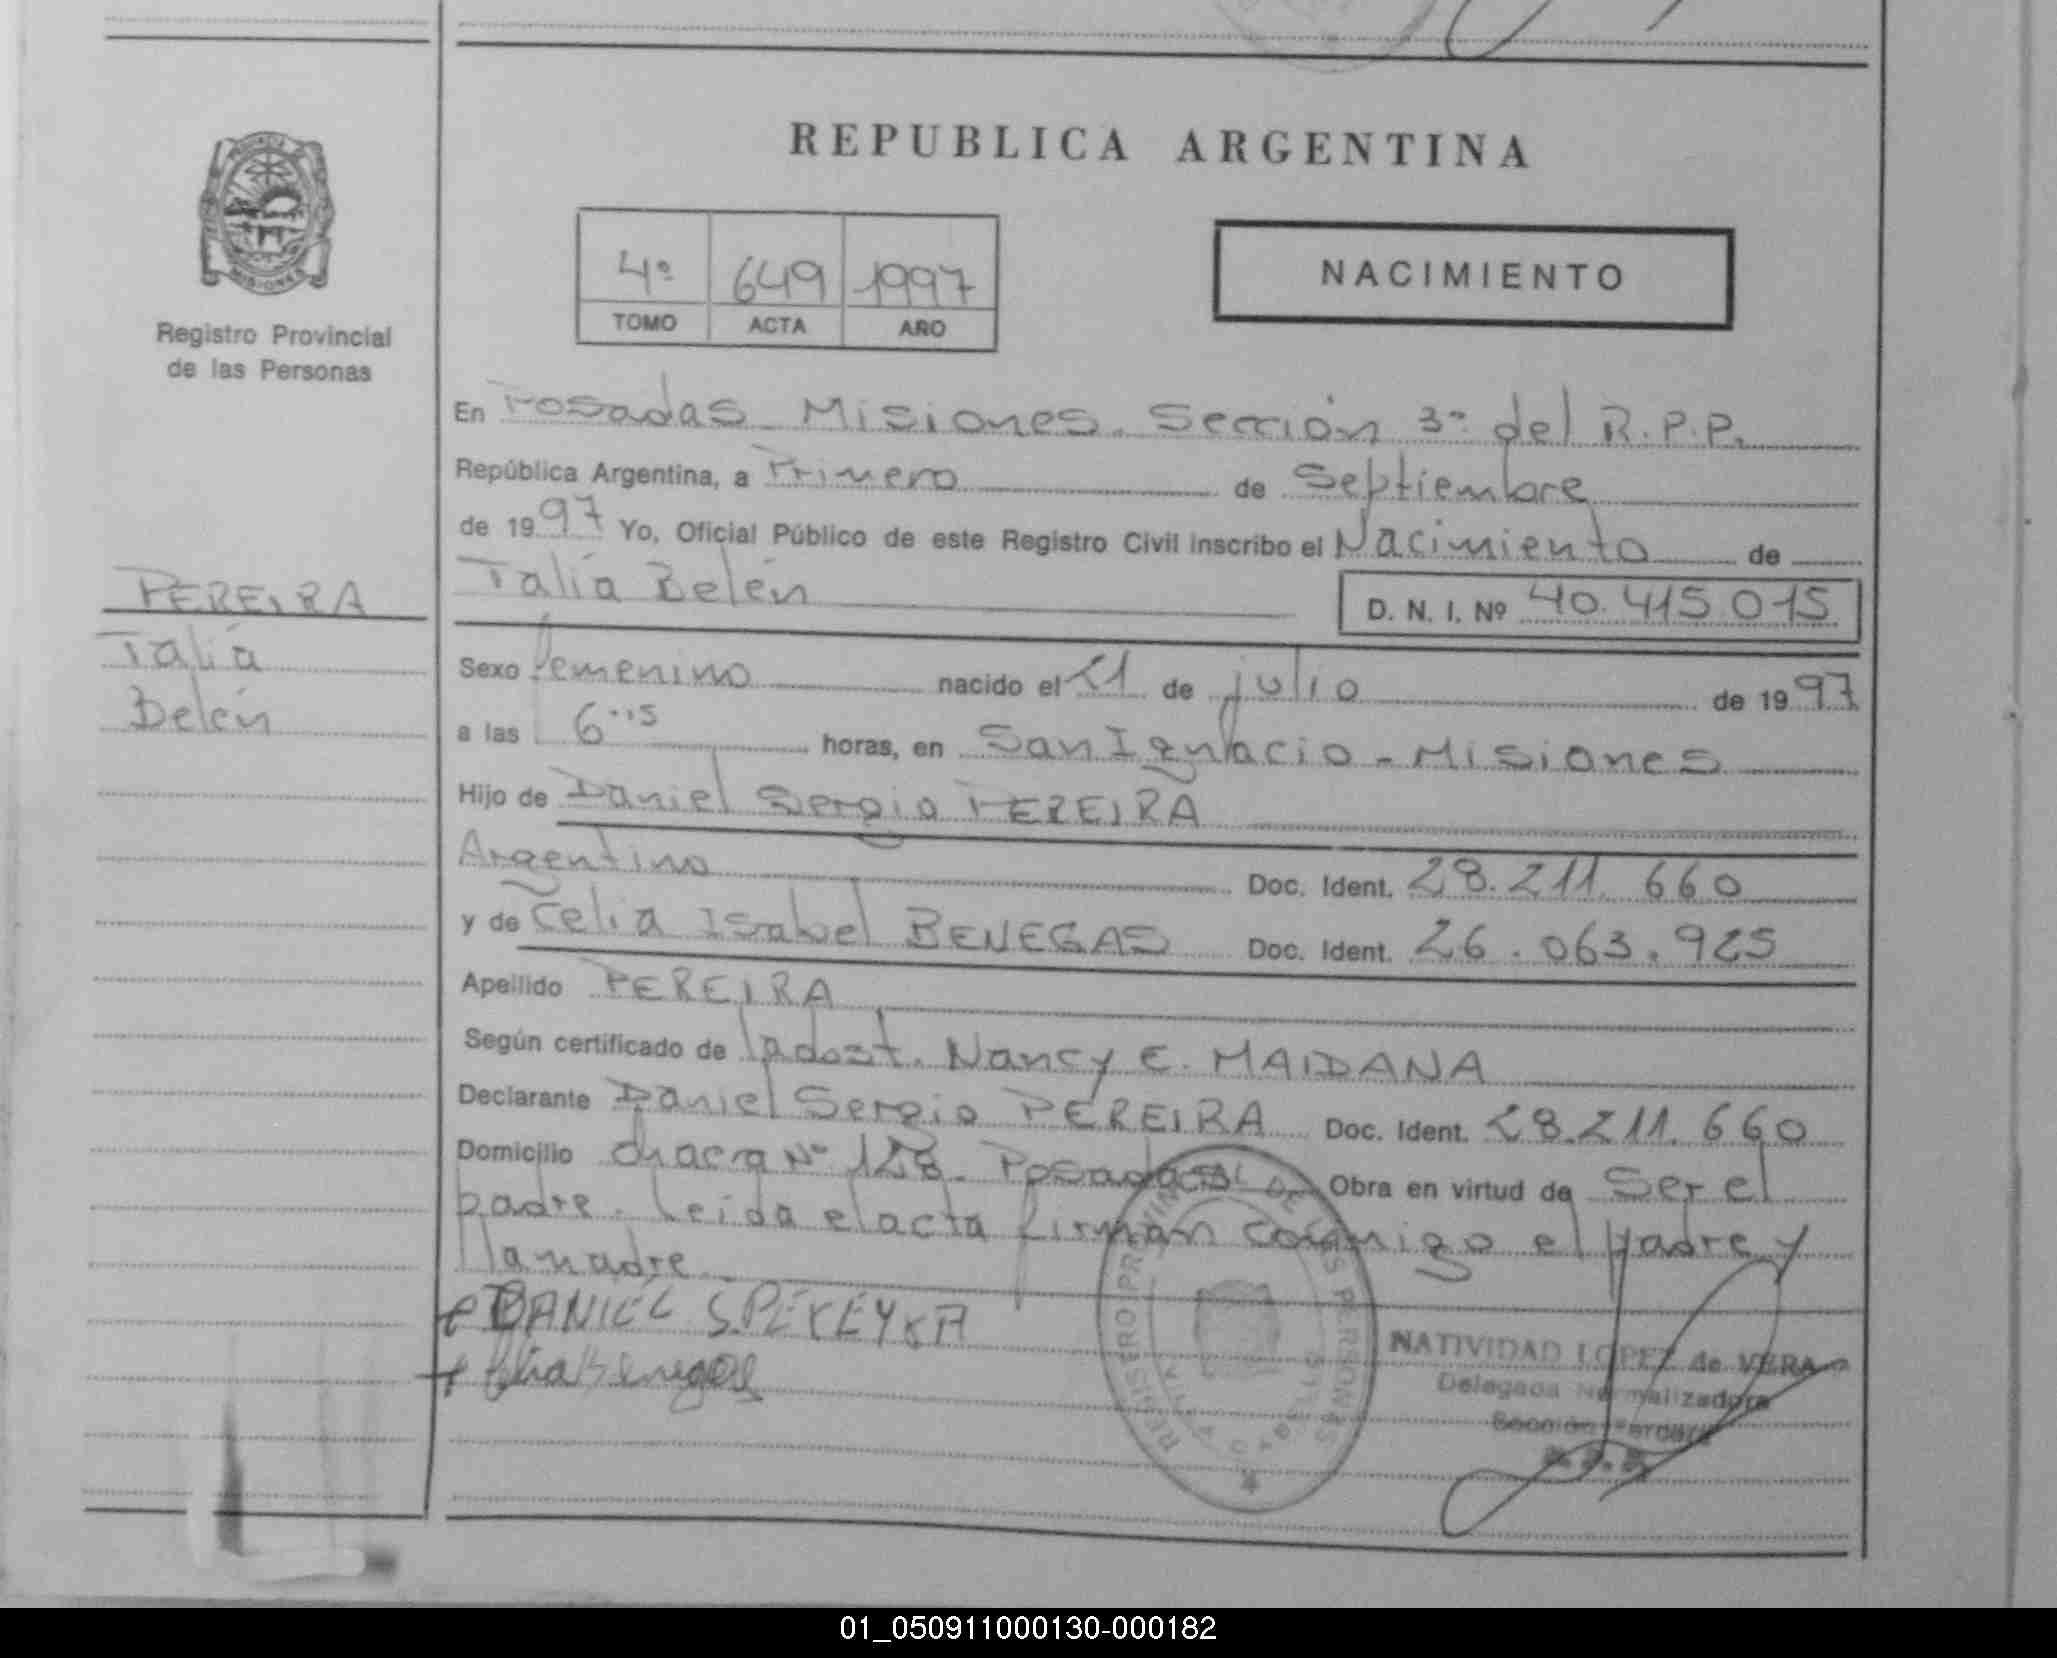 REPUBLICA ARGENTINA
MISIONES
Registro Provincial
de las Personas
4º 649 1997
TOMO ACTA AÑO
NACIMIENTO
En Posadas - Misiones. Sección 3ª del R.P.P.
República Argentina, a Primero de Septiembre
de 1997 Yo, Oficial Público de este Registro Civil inscribo el Nacimiento de
PEREIRA
Talía Belén D. N. I. Nº 40.415.015
Talía
Belén
Sexo femenino nacido el 21 de julio de 1997
a las 6:15 horas, en San Ignacio - Misiones
Hijo de Daniel Sergio PEREIRA
Argentino Doc. Ident. 28.211.660
y de Celia Isabel BENEGAS Doc. Ident. 26.063.925
Apellido PEREIRA
Según certificado de la obst. Nancy E. MAIDANA
Declarante Daniel Sergio PEREIRA Doc. Ident. 28.211.660
Domicilio chacra Nº 128 - Posadas Obra en virtud de Ser el
padre. Leída el acta firman conmigo el padre y
la madre
DANIEL S. PEREYRA
Celia Benegas
REGISTRO PROVINCIAL DE LAS PERSONAS
NATIVIDAD LOPEZ de VERA
Delegada Normalizadora
Sección Tercera
01_050911000130-000182